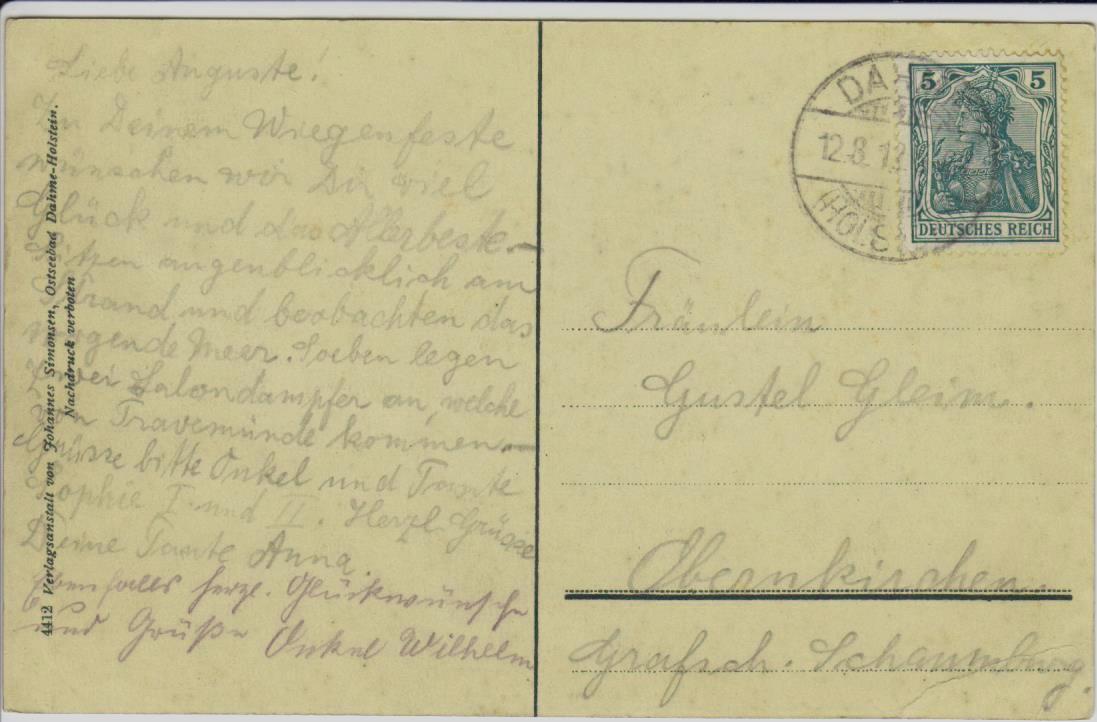 Liebe Auguste!
Zu Deinem Wiegenfeste
wünschen wir Dir viel
Glück und das Allerbeste. –
Sitzen augenblicklich am
Strand und beobachten das
wogende Meer. Soeben legen
zwei Salondampfer an, welche
von Travemünde kommen. –
Grüsse bitte Onkel und Tante
Sophie I. und II. Herzl. Grüsse
Deine Tante Anna.
Ebenfalls herzl. Glückwünsche
und Grüße Onkel Wilhelm
4412 Verlagsanstalt von Johannes Simonsen, Ostseebad Dahme-Holstein.
Nachdruck verboten
DAH
12.8.13
(HOLST
5 5
DEUTSCHES REICH
Fräulein
Gustel Gleim.
Obernkirchen.
Grafsch. Schaumburg.